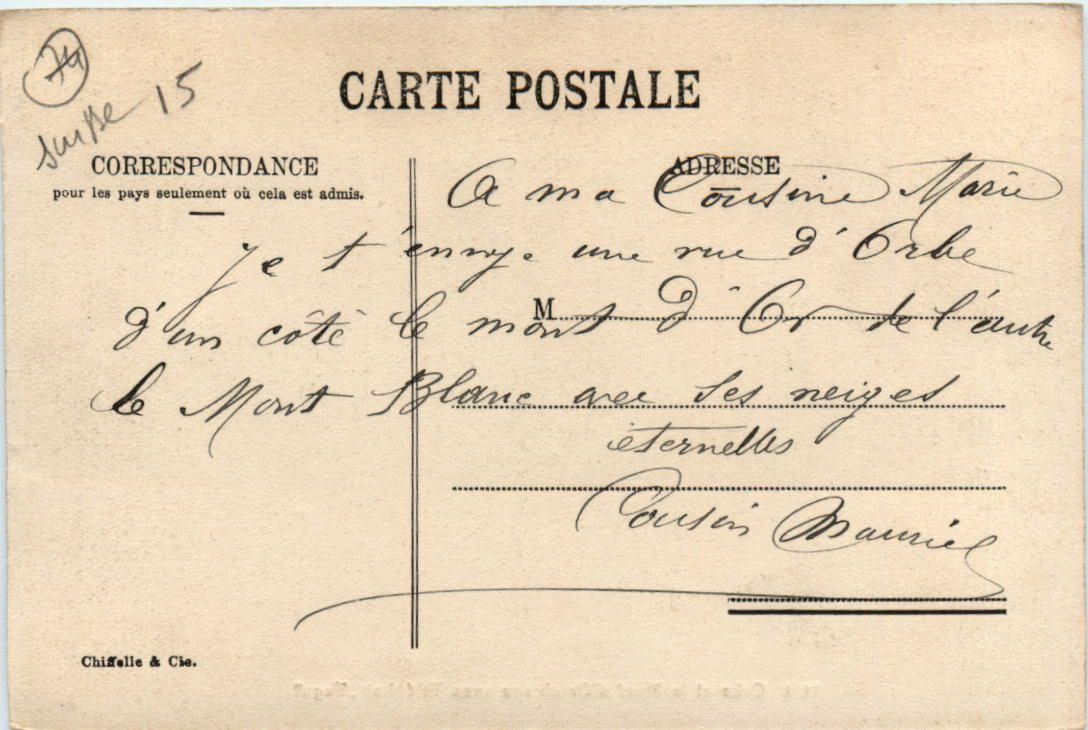 74
Suisse 15
CARTE POSTALE
CORRESPONDANCE
pour les pays seulement où cela est admis.
ADRESSE
A ma Cousine Marie
Je t'envoye une vue d'Orbe
M
d'un côté le mont d'Or de l'autre
le Mont Blanc avec ses neiges
éternelles
Cousin Maurice
Chiffelle & Cie.